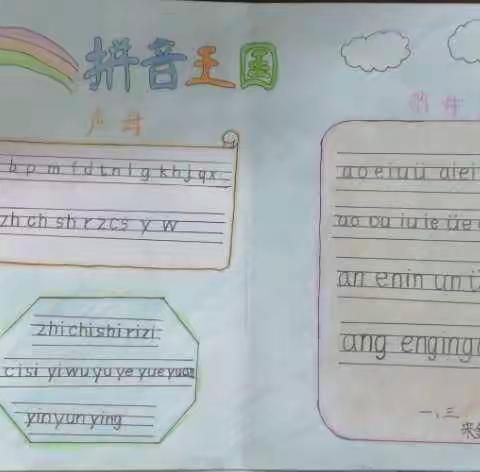 拼音王国
声母
b p m f d t n l g k h j q x
zh ch sh r z c s y w
zhi chi shi ri zi
ci si yi wu yu ye yue yuan
yin yun ying
韵母
a o e i u ü ai ei
ao ou iu ie üe
an en in un ü
ang eng ing
一、三